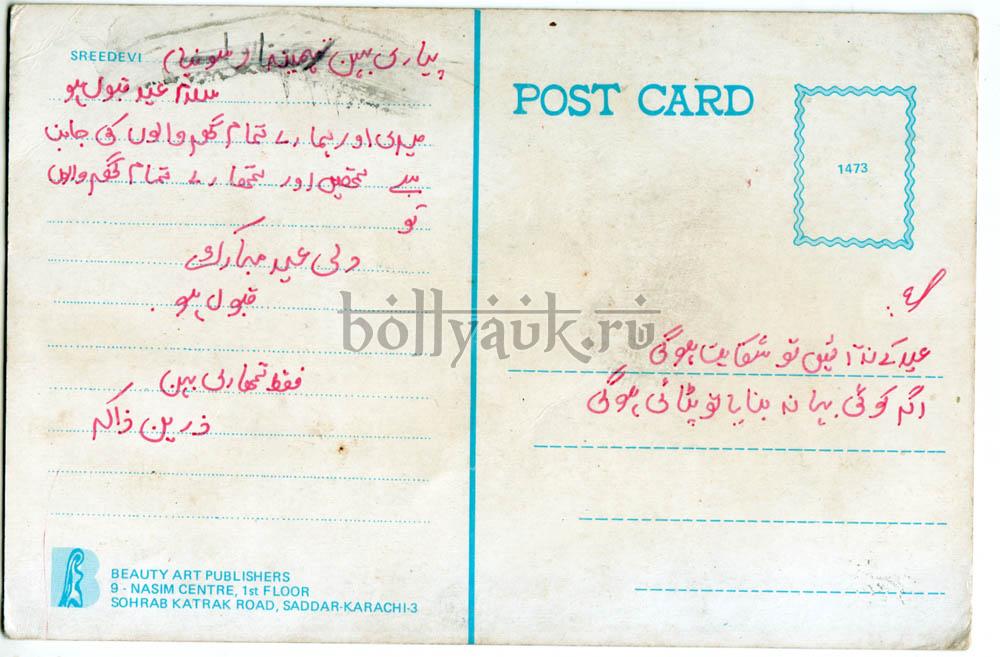 SREEDEVI
پیاری بہن
سلام عید قبول ہو
میری اور ہمارے تمام گھر والوں کی جانب
سے تمھیں اور تمھارے تمام گھر والوں
تو
دلی عید مبارک
قبول ہو.
فقط تمھاری بہن
ذرین ذاکر
BEAUTY ART PUBLISHERS
9 - NASIM CENTRE, 1st FLOOR
SOHRAB KATRAK ROAD, SADDAR-KARACHI-3
POST CARD
1473
عید کے نہ آئیں تو شکایت ہوگی
اگر کوئی بہانہ بنایا تو پٹائی ہوگی
bollyauk.ru